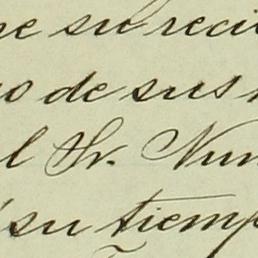 e su reci
o de sus
l Sr. Nun
su tiemp